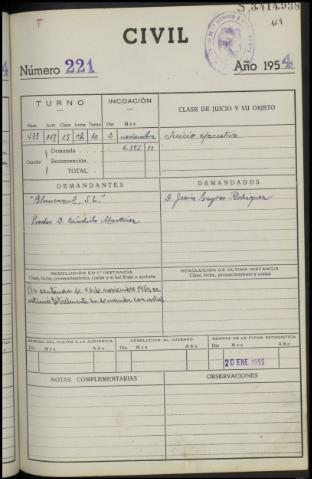 T
S.3414.938
169
CIVIL
Número 221
Año 1954
TURNO
INCOACIÓN
CLASE DE JUICIO Y SU OBJETO
Núm. Artº. Clase Letra Turno
Día Mes
433 10 2 noviembre Juicio ejecutivo
Cuantía
Demanda 6.395 10
Reconvención
TOTAL
DEMANDANTES
DEMANDADOS
"Blancavul, S.L."
D. Jesús Rodríguez
Procdor D. Cándido Martínez
RESOLUCIÓN EN 1ª INSTANCIA
Clase, fecha, pronunciamiento, costas y si fué firme o apelada
RESOLUCIÓN DE ÚLTIMA INSTANCIA
Clase, fecha, pronunciamiento y costas
sentencia de de noviembre
totalmente la demanda con costas
REMESA DEL PLEITO A LA AUDIENCIA
DEVOLUCIÓN AL JUZGADO
REMESA DE LA FICHA ESTADÍSTICA
Día Mes Año
Día Mes Año
Día Mes Año
20 ENE 1955
NOTAS COMPLEMENTARIAS
OBSERVACIONES